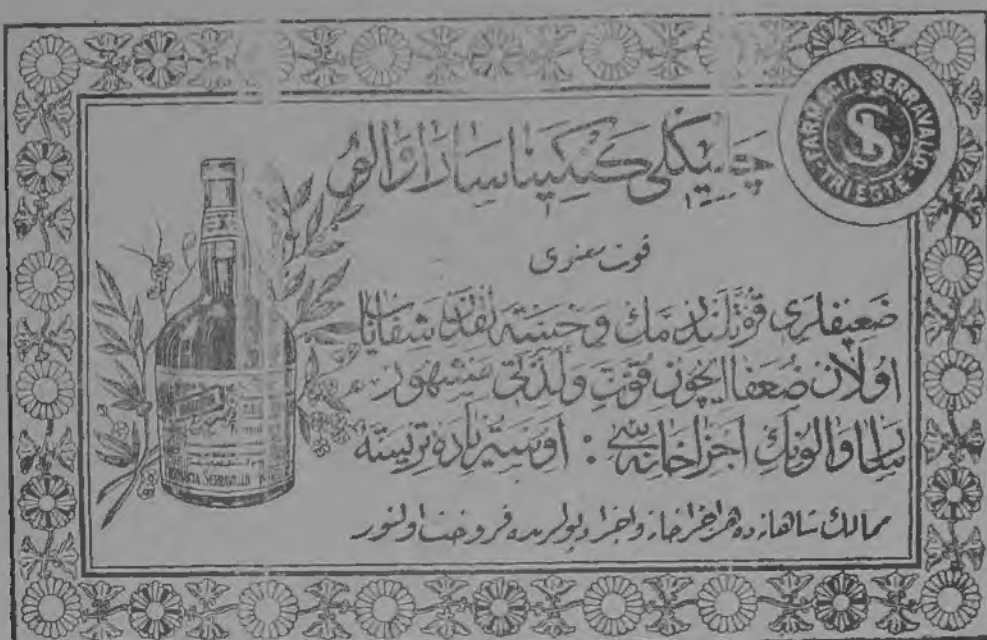 FARMACIA SERRAVALLO
TRIESTE
چلیكلی كنكینا سراوالو
قوت شرابی
ضعیفلری قوتلندیرمك و خسته لقدن شفایاب
اولان ضعفا ایچون قوت ولذتی مشهور
سراوالونك اجزاخانه سی : اوستریاده تریسته
ممالك شاهانه ده هر اجزاخانه و اجزا دپولرنده فروخت اولنور
FARMACIA SERRAVALLO